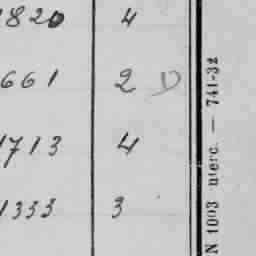 1820 4
661 2 V
1713 4
1333 3
N 1003 merc. — 741-32